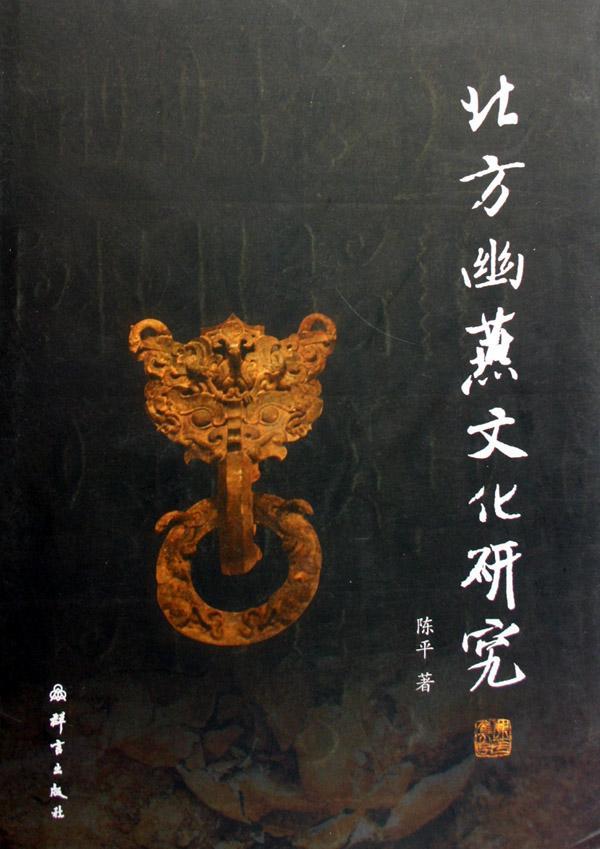 北方幽燕文化研究
陈平 著
群言出版社